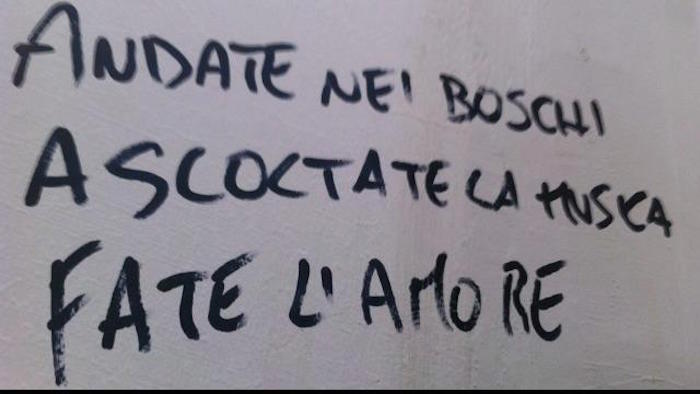 ANDATE NEI BOSCHI
ASCOLTATE LA MUSICA
FATE L'AMORE